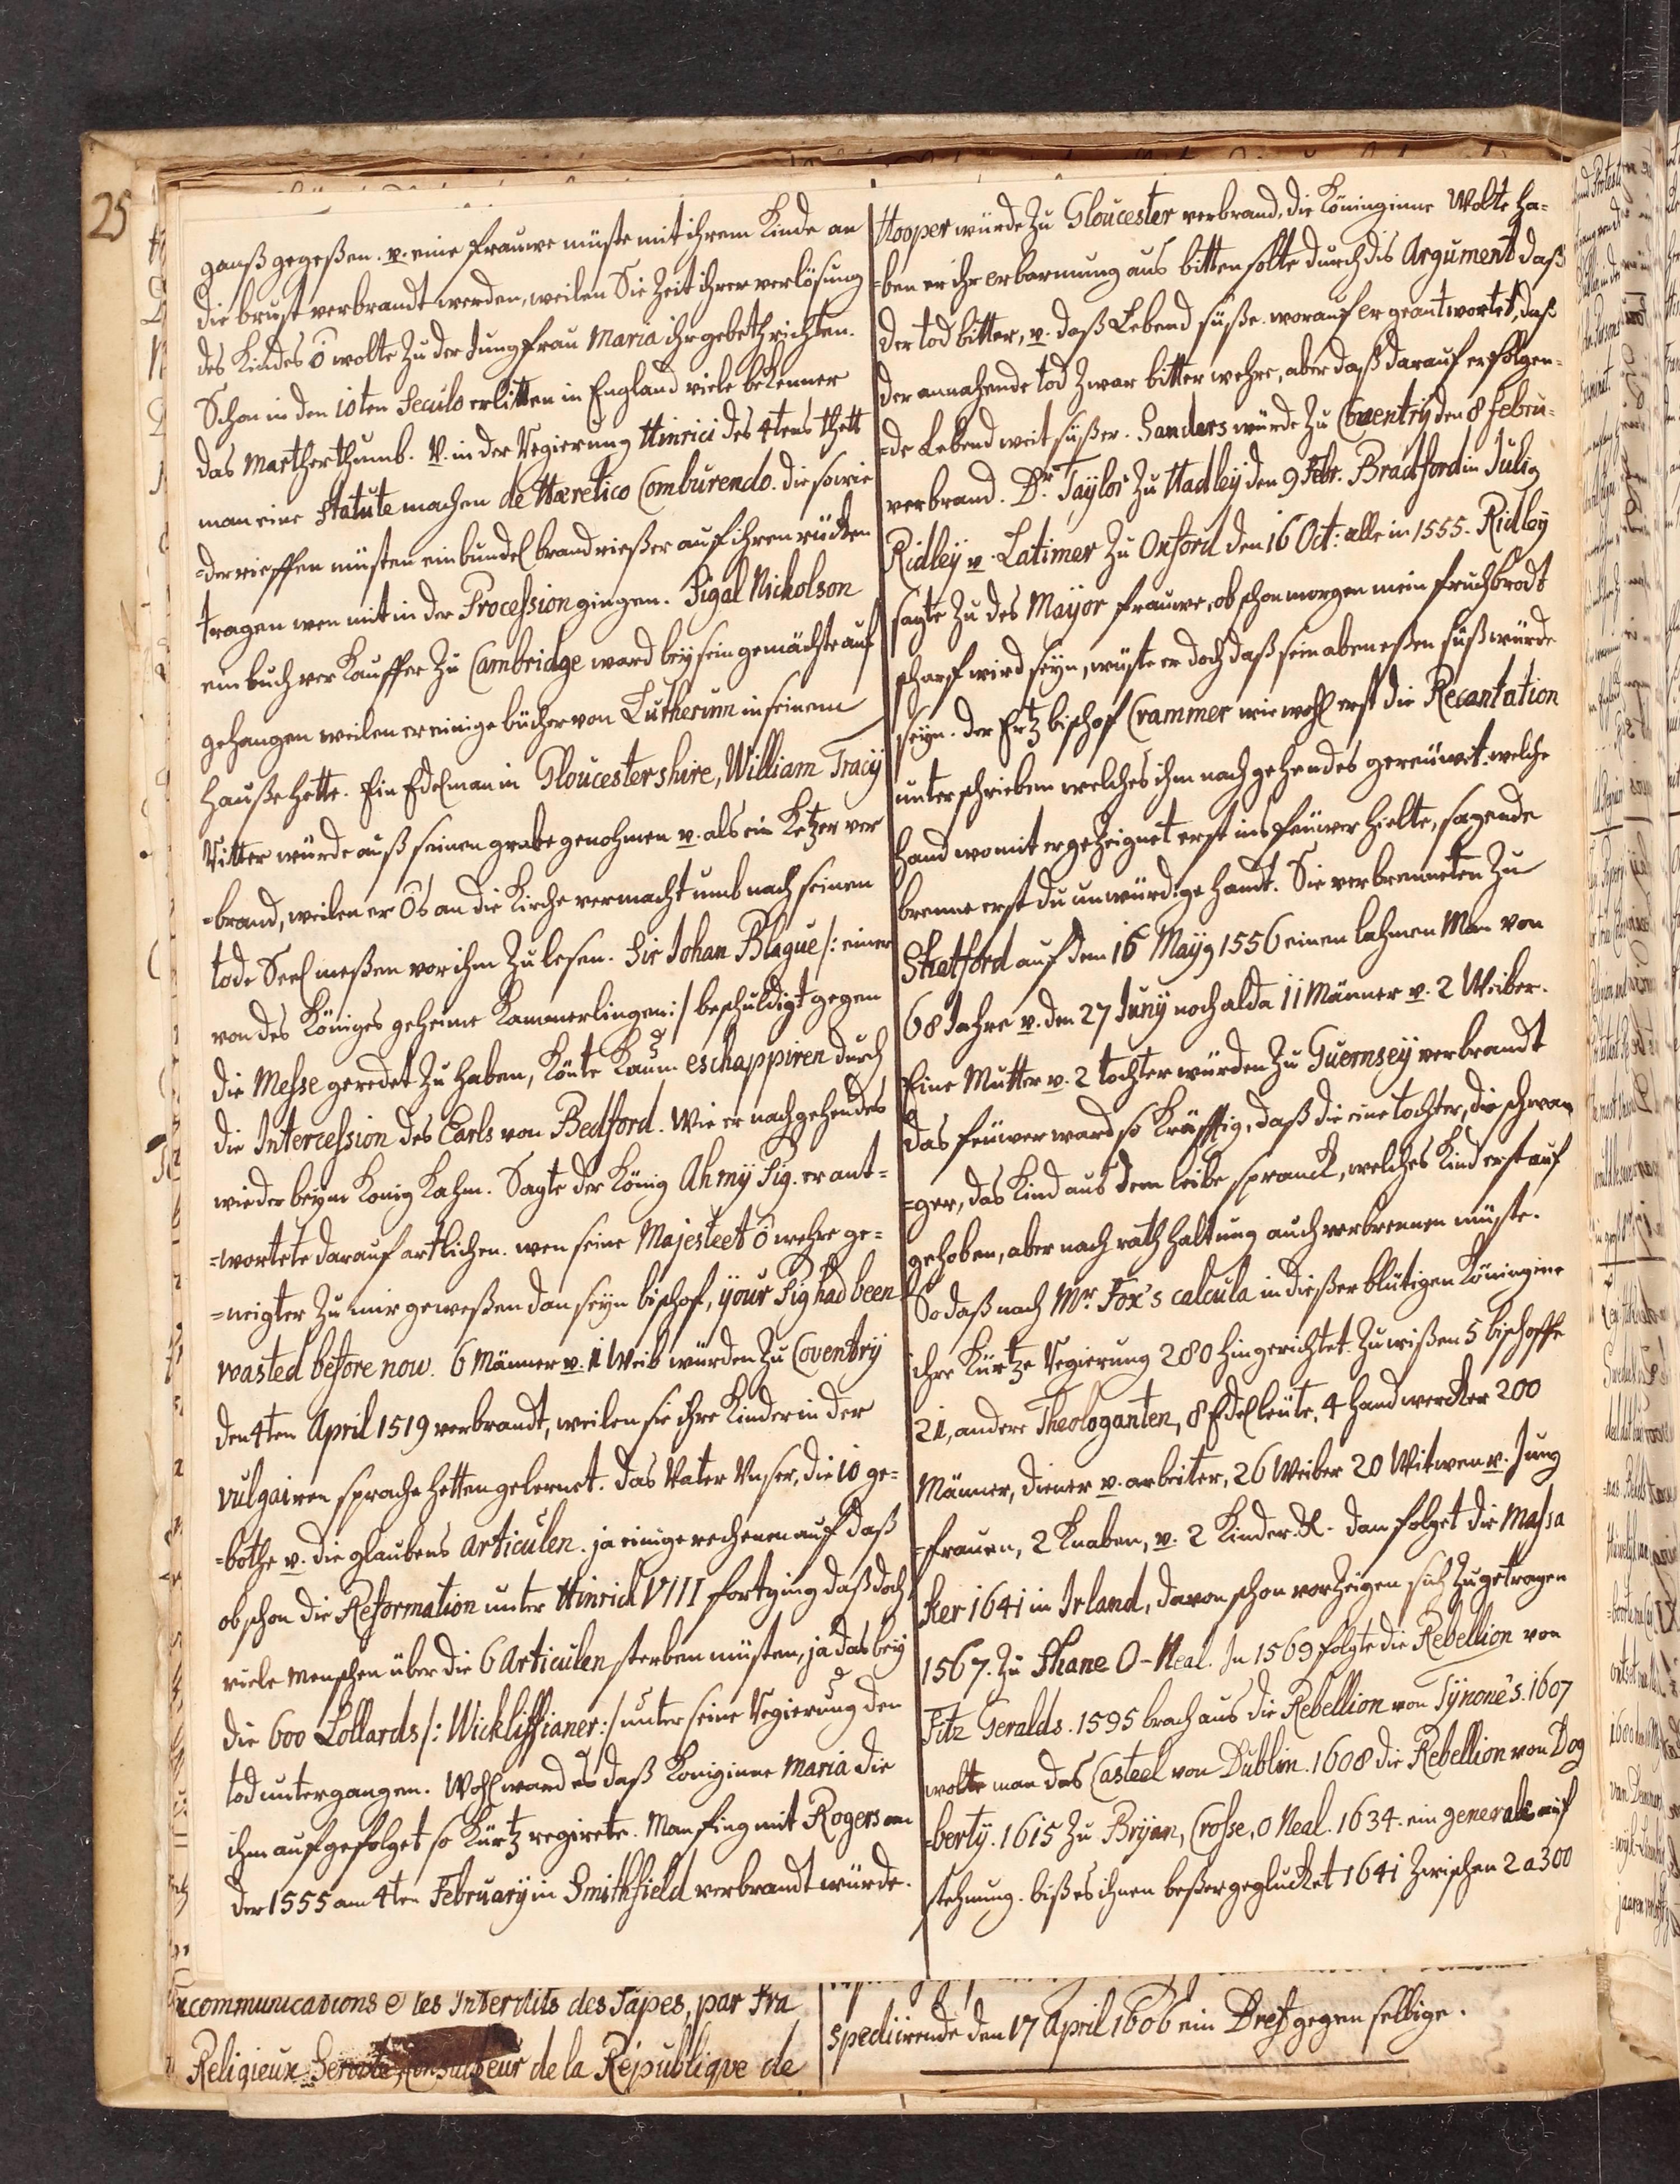 25
ganß gegeßen. v. eine frauwe müste mit ihrem Kinde an
die brust verbrandt werden, weilen Sie Zeit ihrer verlösung
des Kindes ō wolte Zu der Jungfrau Maria ihr gebeth richten.
Schon in den 10ten Seculo erlitten in England viele beKenner
das Martherthumb. V. in der Regierung Hinrici des 4tens thett
man eine Statute machen de Hæretico Comburendo. die so wie
=derrieffen müsten ein bundel brand rießer auf ihren rücken
tragen wen mit in der Procession gingen. Sigal Nicholson
ein buch verKauffer Zu Cambridge ward beÿ sein gemächte auf
gehangen weilen er einige bücher von Lutherum in seinem
Hauße hette. Ein Edelman in Gloucestershire, William Tracÿ
Ritter würde auß seinen grabe genohmen v. als ein Ketzer ver
=brand, weilen er ōs an die Kirche vermacht umb nach seinem
tode Seel meßen vor ihm Zu lesen. Sir Johan Blague /: einer
von des Königes geheime Kammerlingen :/ beschuldigt gegen
die Messe geredet Zu haben, Könte Kaum eschappiren durch
die Intercession des Earls von Bedford. Wie er nachgehendes
wieder beÿm König Kahm. Sagte der König Ah mÿ Pig. er ant=
=wortete darauf artlichen. wen seine Majesteet ō wehre ge=
=neigter Zu mir geweßen dan seÿn bischof, ÿour Pig had been
roasted before now. 6 Männer v. 1 Weib würden Zu Coventrÿ
den 4ten April 1519 verbrandt, weilen sie ihre Kinder in der
vulgairen sprache hetten gelernet. das Vater Unser, die 10 ge=
=bothe v. die glaubens articulen. ja einige rechenen auf daß
ob schon die Reformation unter Hinrich VIII fortging daß doch
viele Menschen über die 6 Articulen sterben müsten, ja das beÿ
die 600 Lollards /: Wickliffianer :/ unter seine Regierung den
tod untergangen. Wohl ward es daß Königinne Maria die
ihm auf gefolget so Kürtz regirete. Man fing mit Rogers an
der 1555 am 4ten Februarÿ in Smithfield verbrandt würde.
Hooper würde Zu Gloucester verbrand, die Köninginne Wolte ha=
=ben er ihr erbarmung aus bitten solte durch dis Argument daß
der tod bitter, v. daß Lebend süße. worauf er geantwortet, daß
der annahende tod Zwar bitter wehre, aber daß darauf erfolgen=
=de Lebend weit süßer. Sanders würde Zu Coventrÿ den 8 febru=
verbrand. Dr. Taÿlor Zu Hadleÿ den 9 Febr. Bradford in Julig
Ridleÿ v. Latimer Zu Oxford den 16 Oct: alle in 1555. Ridleÿ
sagte Zu des Maÿor frauwe, ob schon morgen mein fruchbrodt
scharf wird seÿn, wüste er doch daß sein aben eßen süß würde
seÿn. der Ertz bischof Crammer wie wohl erst die Recantation
unterschrieben welches ihm nachgehendes gereüwet. welche
Hand womit er geZeignet erst ins feüwer hielte, sagende
brenne erst du unwürdige handt. Sie verbrenneten Zu
Stratford auf dem 16 Maÿg 1556 einen lahmen Man von
68 Jahre v. den 27 Junÿ noch alda 11 Männer v. 2 Weiber.
Eine Mutter v. 2 tochter würden Zu Guernseÿ verbrandt
das feüwer ward so Kräfftig, daß die eine tochter, die schwan
=ger, das Kind aus dem leibe spranck, welches Kind erst auf
gehoben, aber nach rathhaltung auch verbrennen müste.
So daß nach Mr. Fox's calcula in dießer blütigen Köningine
ihre Kürtze Regierung 280 hingerichtet. Zu wißen 5 bischoffe
21, andere Theologanten, 8 Edelleüte, 4 handwercker 200
Männer, diener v. arbeiter, 26 Weiber 20 Witwen v. Jung
=frauen, 2 Knaben, v. 2 Kinder. dan folget die Massa
ker 1641 in Irland, davon schon vorZeigen sich Zugetragen
1567. Zu Shane O-Neal. In 1569 folgte die Rebellion von
Fitz Geralds. 1595 brach aus die Rebellion von Tÿrone's. 1607
wolte man das Casteel von Dublin. 1608 die Rebellion von Dog
=bertÿ. 1615 Zu Brÿan, Crosse, O Neal. 1634. ein generale auf
stehnung. biß es ihnen beßer geglucket 1641 Zwischen 2 a 300
communications e les Interdits des Papes, par Fra
Religieux Servite, Consulteur de la Republique de
spediirende den 17 April 1606 ein Bref gegen selbige.